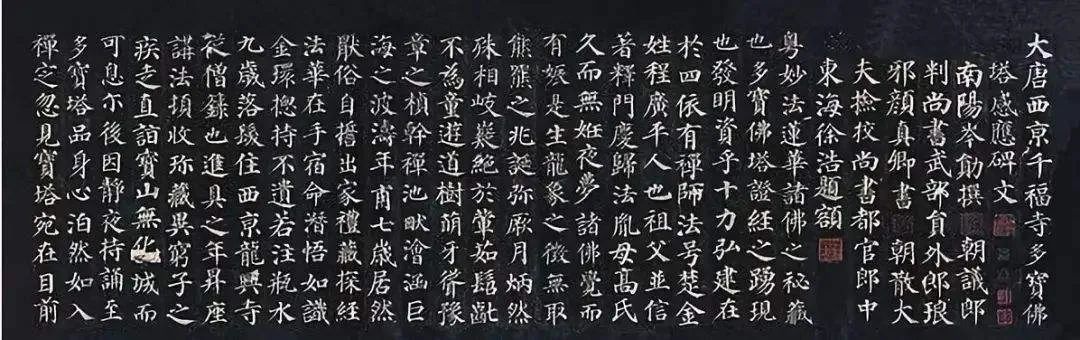 大唐西京千福寺多寶佛
塔感應碑文
南陽岑勛撰 朝議郎
判尚書武部員外郎琅
邪顏真卿書 朝散大
夫撿挍尚書都官郎中
東海徐浩題額
粵妙法蓮華諸佛之秘藏
也多寶佛塔證經之踴現
也發明資乎十力弘建在
於四依有禪師法号楚金
姓程廣平人也祖父並信
著釋門慶歸法胤母高氏
久而無姙夜夢諸佛覺而
有娠是生龍象之徵無取
熊羆之兆誕弥厥月炳然
殊相岐嶷絕於葷茹髫齔
不為童遊道樹萌牙聳豫
章之楨幹禪池畎澮涵巨
海之波濤年甫七歲居然
厭俗自誓出家禮藏探經
法華在手宿命潛悟如識
金環揔持不遺若注瓶水
九歲落髮住西京龍興寺
從僧籙也進具之年昇座
講法頓收弥藏異窮子之
疾走直詣寶山無化城而
可息尒後因靜夜持誦至
多寶塔品身心泊然如入
禪定忽見寶塔宛在目前